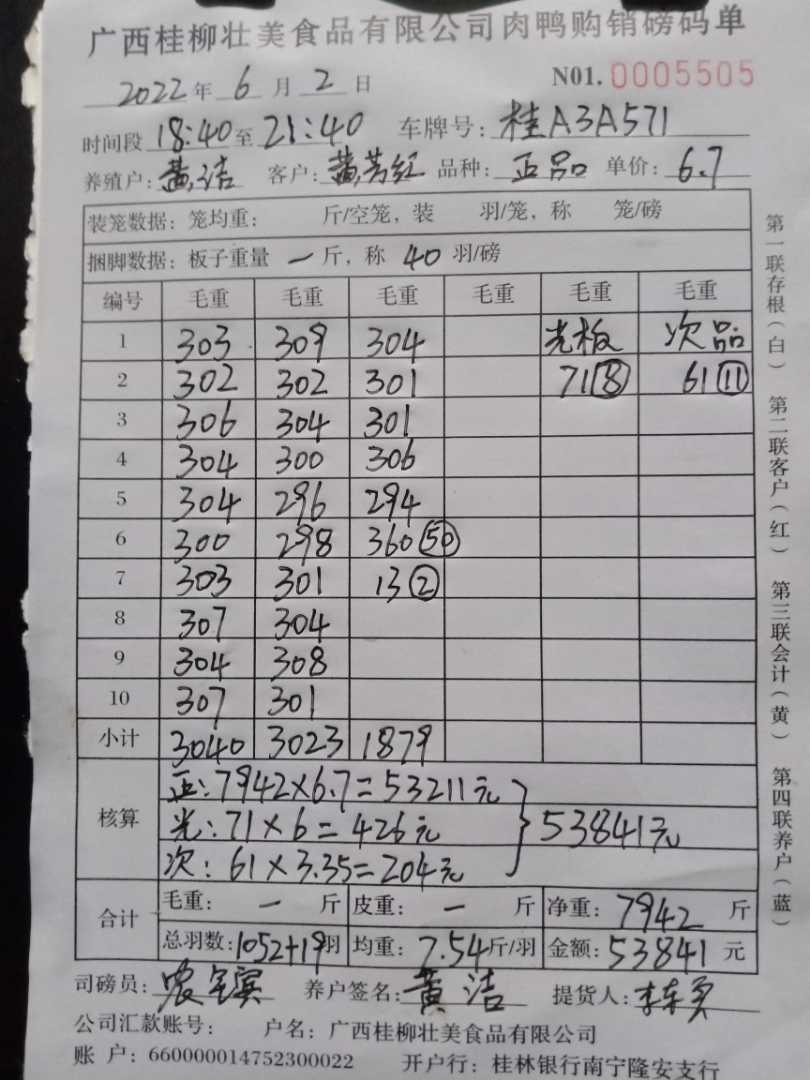 广西桂柳壮美食品有限公司肉鸭购销磅码单
2022年6月2日 NO1. 0005505
时间段 18:40至21:40 车牌号：桂A3A571
养殖户：黄洁 客户：黄芳红 品种：正品 单价：6.7
装笼数据：笼均重： 斤/空笼，装 羽/笼，称 笼/磅
捆脚数据：板子重量 一 斤，称 40 羽/磅
编号 毛重 毛重 毛重 毛重 毛重 毛重
1 303 309 304 光板 次品
2 302 302 301 71⑧ 61⑪
3 306 304 301
4 304 300 306
5 304 296 294
6 300 298 360㊿
7 303 301 13②
8 307 304
9 304 308
10 307 301
小计 3040 3023 1879
核算
正：7942×6.7=53211元
光：71×6=426元
次：61×3.35=204元
53841元
合计
毛重： 一 斤 皮重： 一 斤 净重：7942 斤
总羽数：1052+19羽 均重：7.54斤/羽 金额：53841 元
司磅员： 养户签名：黄洁 提货人：
公司汇款账号： 户名：广西桂柳壮美食品有限公司
账 户：660000014752300022 开户行：桂林银行南宁隆安支行
第一联存根（白） 第二联客户（红） 第三联会计（黄） 第四联养户（蓝）